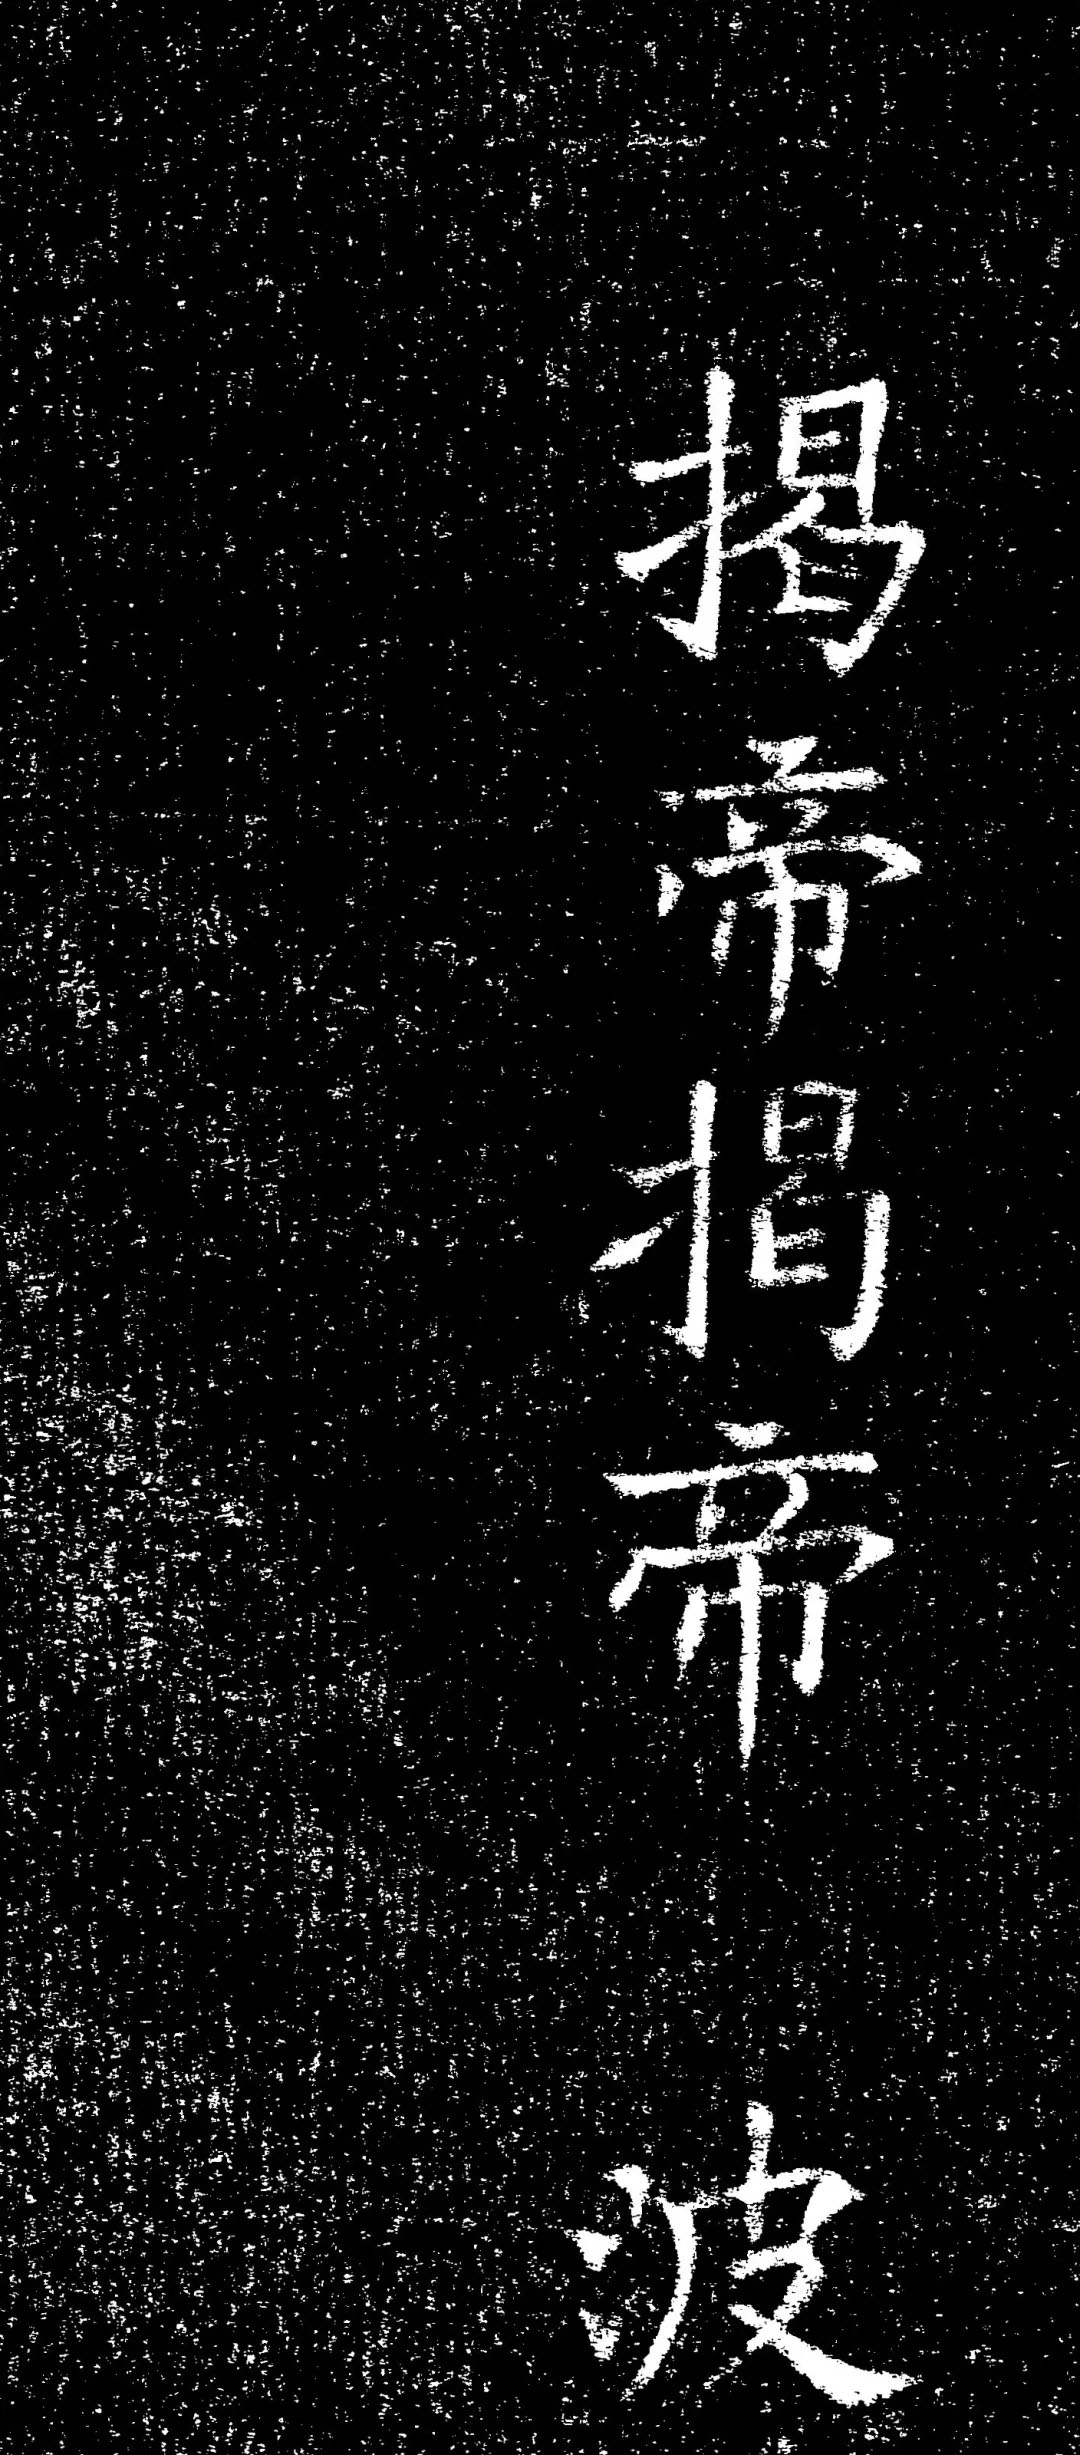 揭帝揭帝 波